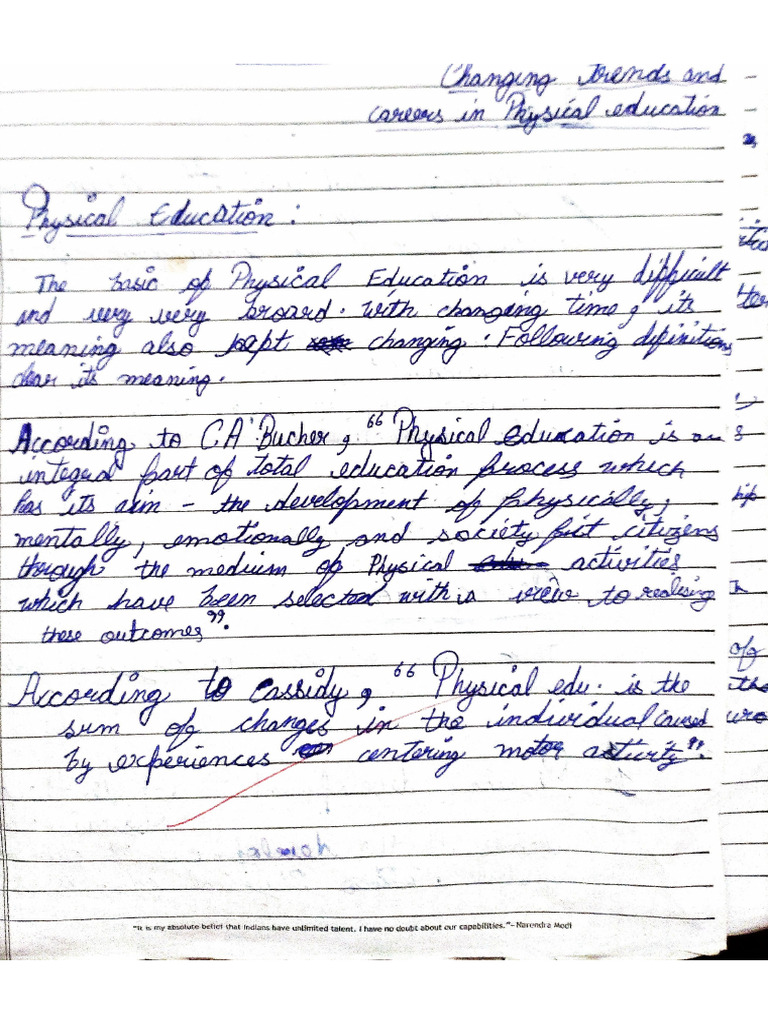 Changing trends and
careers in Physical education
Physical Education :
The basic of Physical Education is very difficult
and very very broard. With changing time, its
meaning also kept changing. Following definitions
clear its meaning.
According to C.A Bucher, "Physical education is an
integral part of total education process which
has its aim - the development of physically,
mentally, emotionally and society fit citizens
through the medium of Physical activities
which have been selected with a view to realising
these outcomes".
According to Cassidy, "Physical edu. is the
sum of changes in the individual caused
by experiences centering motor activity".
"It is my absolute belief that Indians have unlimited talent. I have no doubt about our capabilities."- Narendra Modi